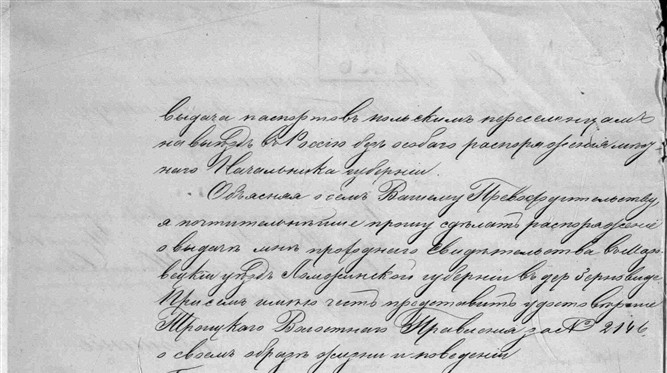 выдача паспортовъ польскимъ переселенцамъ
на выѣздъ въ Россію безъ особаго распоряженія мѣст
наго Начальника губерніи.
Объясняя о семъ Вашему Превосходительству
я почтительнѣйше прошу сдѣлать распоряженіе
о выдачѣ мнѣ проходнаго свидѣтельства въ Мазо
вецкій уѣздъ Ломжинской губерніи въ дер
При семъ имѣю честь представить удостовѣреніе
Троицкаго Волостнаго Правленія за № 2146
о своемъ образѣ жизни и поведеніи